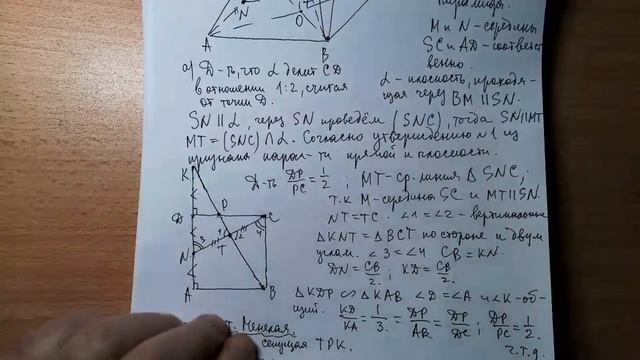 N
A
O
B
M и N - середины
SC и AD - соответст
венно.
а) Д-ть, что α делит CD
в отношении 1:2, считая
от точки D.
α - плоскость, проходя-
щая через BM ∥ SN.
SN ∥ α, через SN проведём (SNC), тогда SN∥MT
MT = (SNC) ∩ α. Согласно утверждению №1 из
признака парал-ти прямой и плоскости.
Д-ть DP/PC = 1/2 ; MT-ср. линия Δ SNC,
т.к M-середина SC и MT∥SN.
NT=TC. ∠1=∠2 - вертикальные
ΔKNT = ΔBCT по стороне и двум
углам. ∠3=∠4 CB=KN.
DN = CB/2. ; KD = CB/2.
ΔKDP ∽ ΔKAB ∠D=∠A и ∠K-об-
щий. KD/KA = 1/3. = DP/AB = DP/DC ; DP/PC = 1/2.
ч.т.д.
K
D
P
C
1
2
3
4
N
T
A
B
т. Менелая,
секущая TPK.